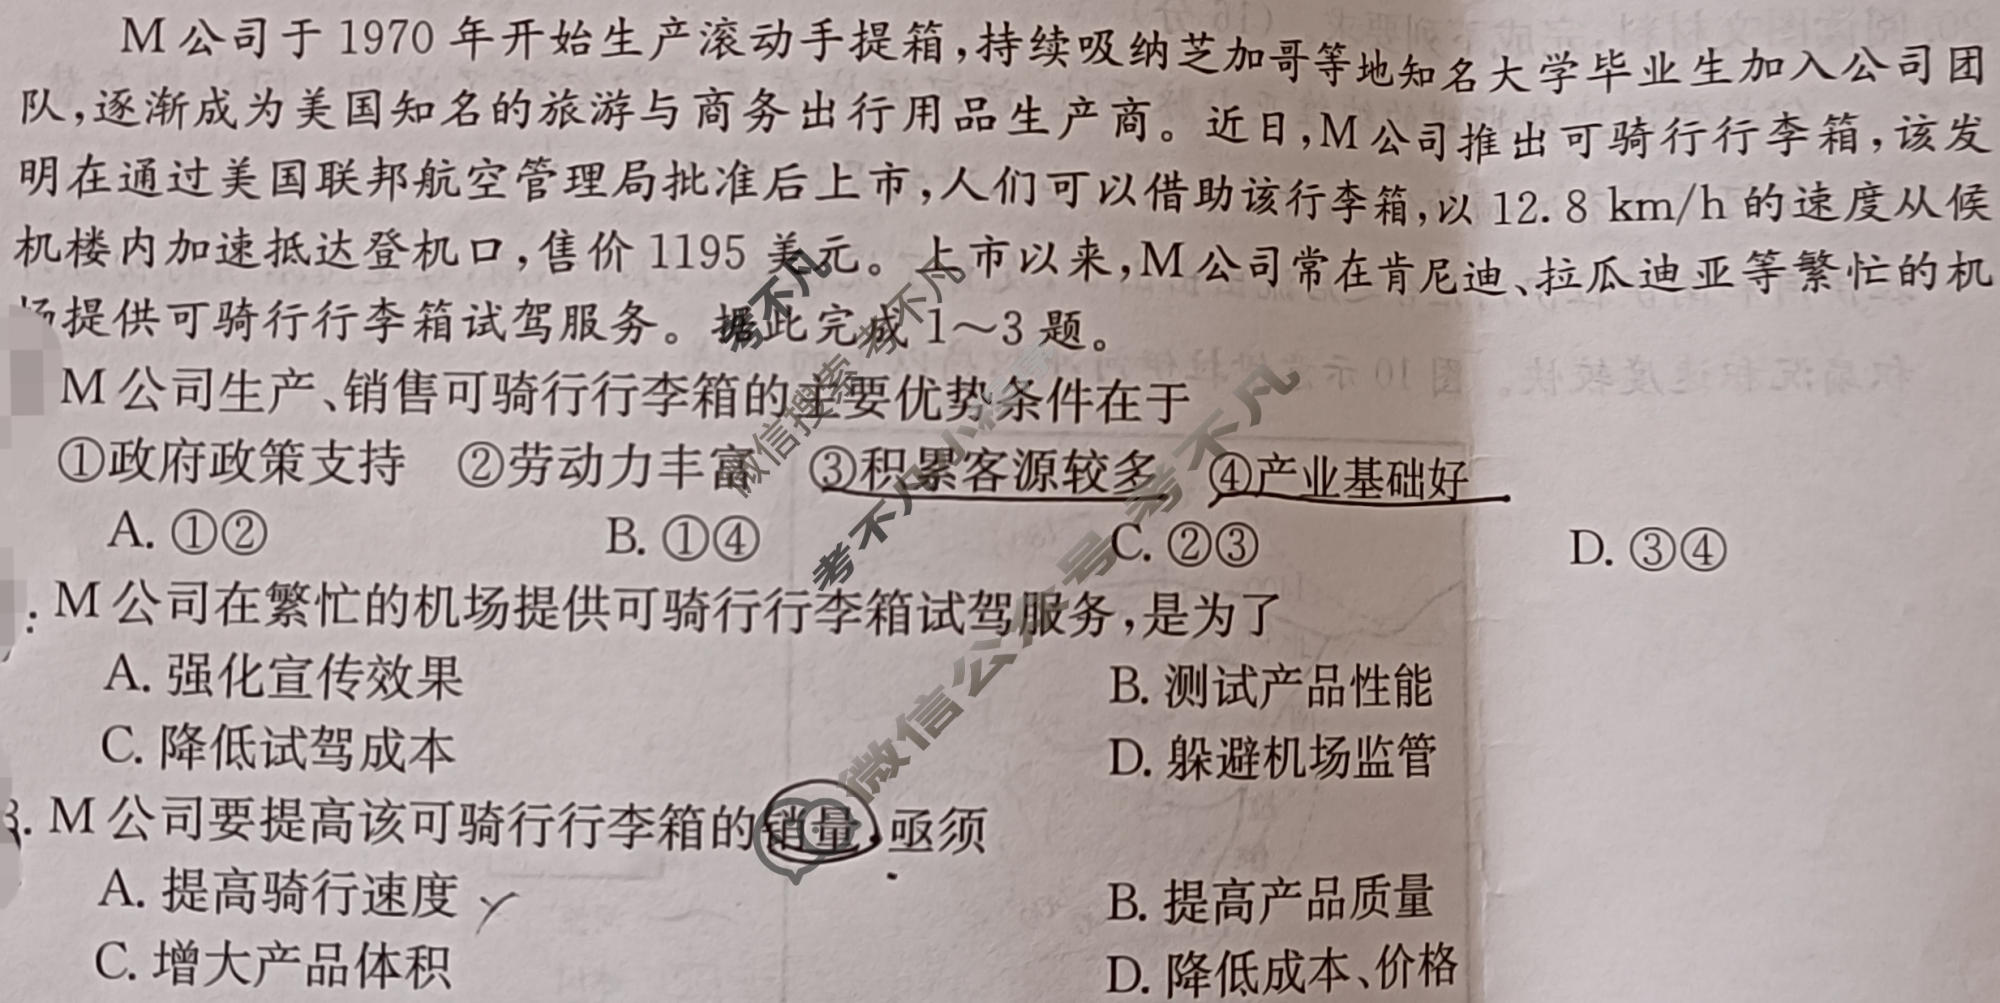 M公司于1970年开始生产滚动手提箱,持续吸纳芝加哥等地知名大学毕业生加入公司团
队,逐渐成为美国知名的旅游与商务出行用品生产商。近日,M公司推出可骑行行李箱,该发
明在通过美国联邦航空管理局批准后上市,人们可以借助该行李箱,以12.8 km/h的速度从候
机楼内加速抵达登机口,售价1195美元。上市以来,M公司常在肯尼迪、拉瓜迪亚等繁忙的机
场提供可骑行行李箱试驾服务。据此完成1~3题。
M公司生产、销售可骑行行李箱的主要优势条件在于
①政府政策支持 ②劳动力丰富 ③积累客源较多 ④产业基础好
A. ①② B. ①④ C. ②③ D. ③④
M公司在繁忙的机场提供可骑行行李箱试驾服务,是为了
A. 强化宣传效果 B. 测试产品性能
C. 降低试驾成本 D. 躲避机场监管
3. M公司要提高该可骑行行李箱的销量,亟须
A. 提高骑行速度 B. 提高产品质量
C. 增大产品体积 D. 降低成本、价格
考不凡
微信搜索 考不凡
考不凡小程序
微信公众号 考不凡